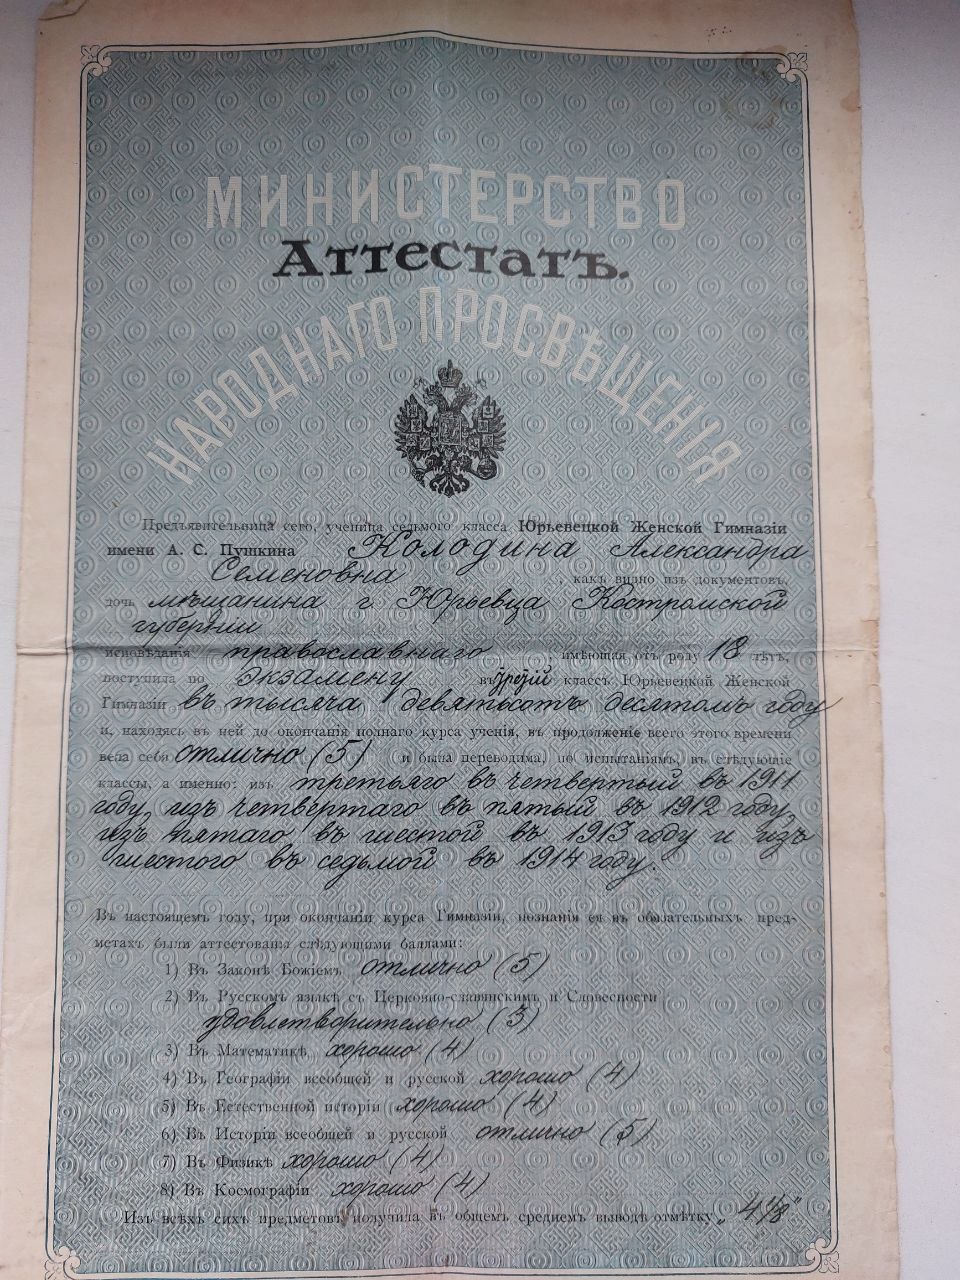 МИНИСТЕРСТВО
Аттестатъ.
НАРОДНАГО ПРОСВѢЩЕНІЯ
Предъявительница сего, ученица седьмого класса Юрьевецкой Женской Гимназіи
имени А. С. Пушкина Колодина Александра
Семеновна, какъ видно изъ документовъ,
дочь мѣщанина г. Юрьевца Костромской
губерніи
исповѣданія православнаго имѣющая отъ роду 18 лѣтъ,
поступила по экзамену въ третій классъ Юрьевецкой Женской
Гимназіи въ тысяча девятьсотъ десятомъ году
и, находясь въ ней до окончанія полнаго курса ученія, въ продолженіе всего этого времени
вела себя отлично (5) и была переводима, по испытаніямъ, въ слѣдующіе
классы, а именно: изъ третьяго въ четвертый въ 1911
году, изъ четвертаго въ пятый въ 1912 году,
изъ пятаго въ шестой въ 1913 году и изъ
шестого въ седьмой въ 1914 году.
Въ настоящемъ году, при окончаніи курса Гимназіи, познанія ея въ обязательныхъ пред-
метахъ были аттестованы слѣдующими баллами:
1) Въ Законѣ Божіемъ отлично (5)
2) Въ Русскомъ языкѣ съ Церковно-славянскимъ и Словесности
удовлетворительно (3)
3) Въ Математикѣ хорошо (4)
4) Въ Географіи всеобщей и русской хорошо (4)
5) Въ Естественной исторіи хорошо (4)
6) Въ Исторіи всеобщей и русской отлично (5)
7) Въ Физикѣ хорошо (4)
8) Въ Космографіи хорошо (4)
Изъ всѣхъ сихъ предметовъ получила въ общемъ среднемъ выводѣ отмѣтку „4 1/8"